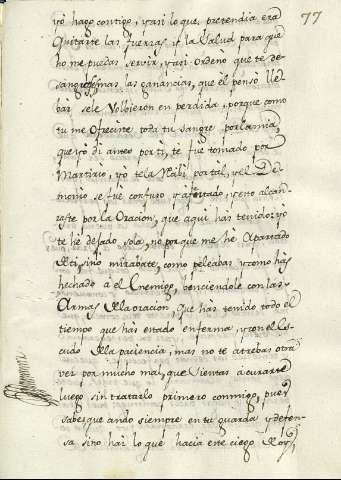 77
yo hago contigo, y asi lo que, pretendia era
Quitarte las fuerzas, y la Salud para que
no me puedas servir, y asi ordeno que te de-
sangres mas las ganancias, que el pensò lle-
bar se le Volbieron en perdida, porque como
tu me ofreciste toda tu sangre por la mia,
que yo di antes por ti, te fue tomado por
Martirio, yo te la recibi por tal, y el De-
monio se fuè confuso y afrentado, y esto alcan-
zaste por la Oracion, que aqui has tenido: yo
te hè dejado sola, no porque me hè Apartado
de ti, sino mirabate, como peleabas y como has
hechado à el Enemigo, benciendole con las
Armas de la oracion, que has tenido todo el
tiempo que has estado enferma, y con el Es-
cudo de la paciencia, mas no te atrebas otra
ver por mucho mal, que Sientas à curarte
luego sin tratarlo primero conmigo, pues
sabes que ando siempre en tu guarda y defen-
sa sino haz lo que hacia este ciego de oy